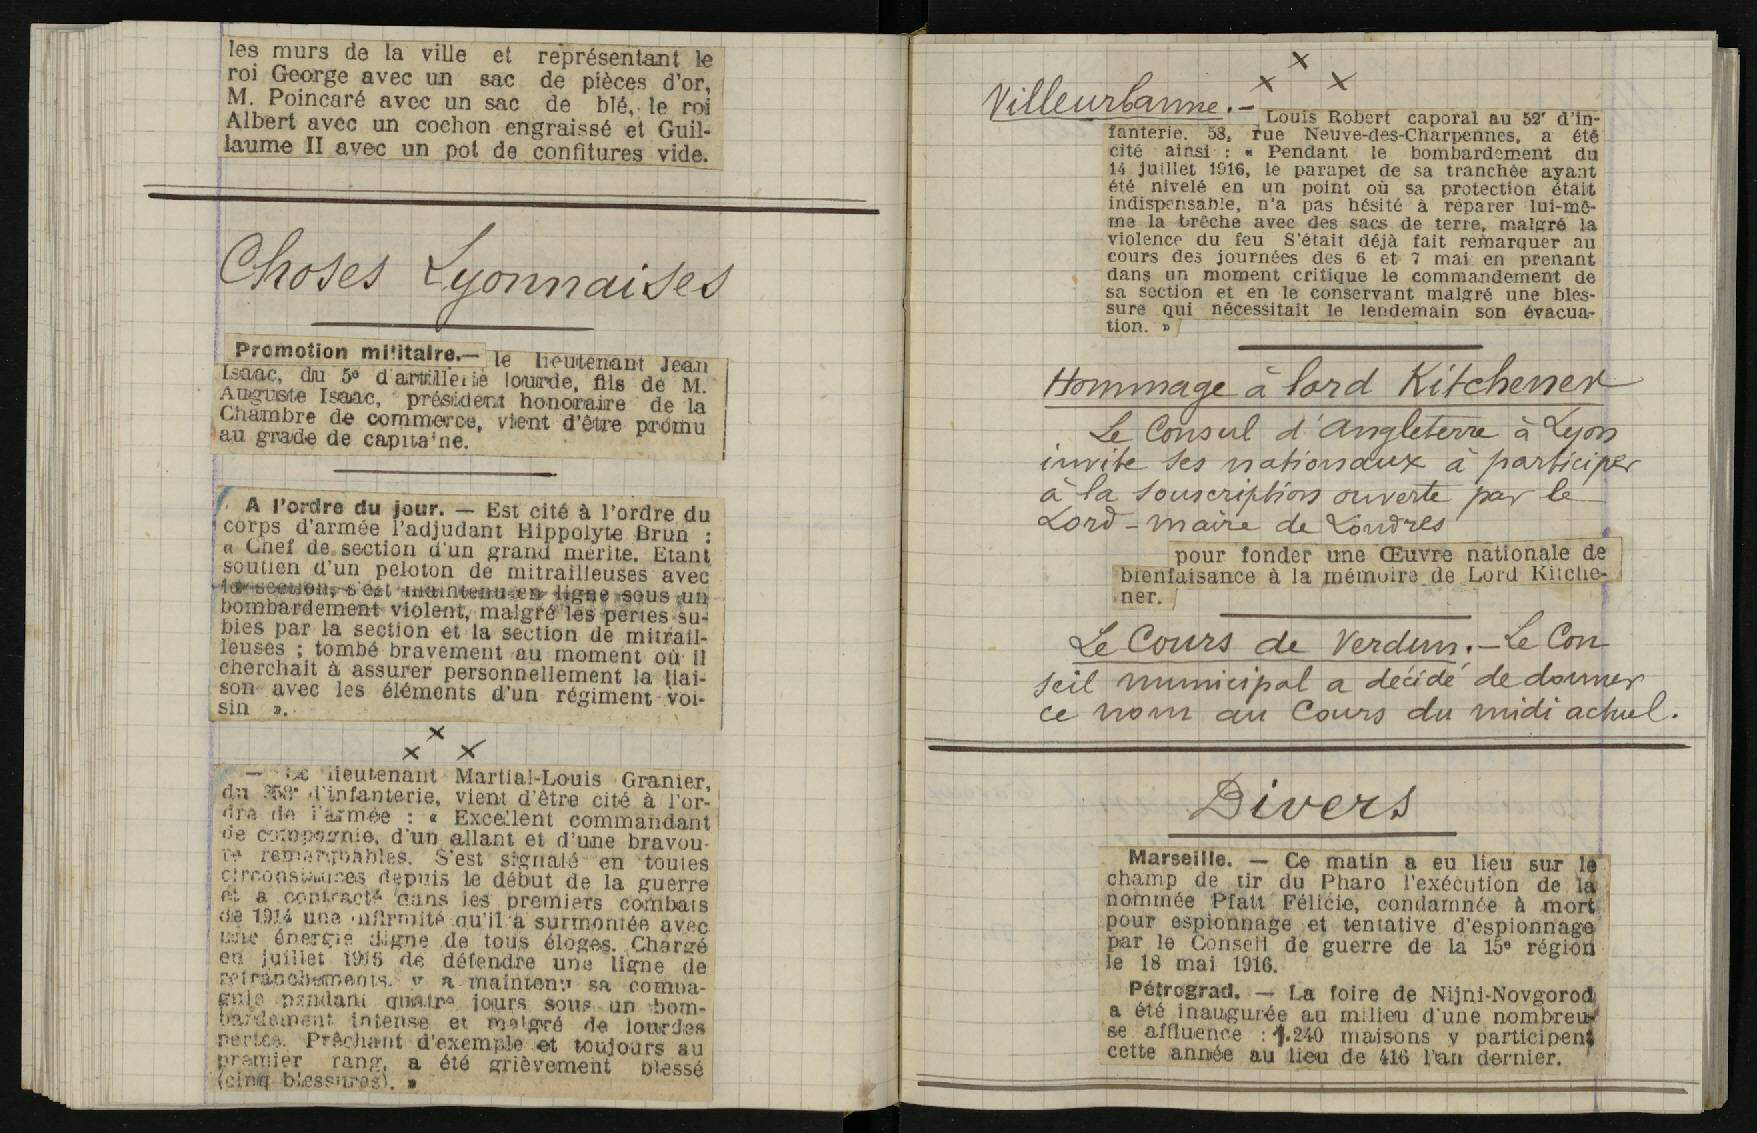 les murs de la ville et représentant le
roi George avec un sac de pièces d'or,
M. Poincaré avec un sac de blé, le roi
Albert avec un cochon engraissé et Guil-
laume II avec un pot de confitures vide.
Choses Lyonnaises
Promotion militaire.— le lieutenant Jean
Isaac, du 5e d'artillerie lourde, fils de M.
Auguste Isaac, président honoraire de la
Chambre de commerce, vient d'être promu
au grade de capitaine.
A l'ordre du jour. — Est cité à l'ordre du
corps d'armée l'adjudant Hippolyte Brun :
« Chef de section d'un grand mérite. Etant
soutien d'un peloton de mitrailleuses avec
sa section, s'est maintenu en ligne sous un
bombardement violent, malgré les pertes su-
bies par la section et la section de mitrail-
leuses ; tombé bravement au moment où il
cherchait à assurer personnellement la liai-
son avec les éléments d'un régiment voi-
sin ».
x
x x
— Le lieutenant Martial-Louis Granier,
du 358e d'infanterie, vient d'être cité à l'or-
dre de l'armée : « Excellent commandant
de compagnie, d'un allant et d'une bravou-
re remarquables. S'est signalé en toutes
circonstances depuis le début de la guerre
et a contracté dans les premiers combats
de 1914 une infirmité qu'il a surmontée avec
une énergie digne de tous éloges. Chargé
en juillet 1916 de défendre une ligne de
retranchements, y a maintenu sa compa-
gnie pendant quatre jours sous un bom-
bardement intense et malgré de lourdes
pertes. Prêchant d'exemple et toujours au
premier rang, a été grièvement blessé
(cinq blessures). »
x
x x
Villeurbanne. — Louis Robert caporal au 52e d'in-
fanterie. 58, rue Neuve-des-Charpennes, a été
cité ainsi : « Pendant le bombardement du
14 juillet 1916, le parapet de sa tranchée ayant
été nivelé en un point où sa protection était
indispensable, n'a pas hésité à réparer lui-mê-
me la brêche avec des sacs de terre, malgré la
violence du feu S'était déjà fait remarquer au
cours des journées des 6 et 7 mai en prenant
dans un moment critique le commandement de
sa section et en le conservant malgré une bles-
sure qui nécessitait le lendemain son évacua-
tion. »
Hommage à lord Kitchener
Le Consul d'Angleterre à Lyon
invite ses nationaux à participer
à la souscription ouverte par le
Lord-maire de Londres
pour fonder une Œuvre nationale de
bienfaisance à la mémoire de Lord Kitche-
ner.
Le Cours de Verdun. — Le Con
seil municipal a décidé de donner
ce nom au Cours du midi actuel.
Divers
Marseille. — Ce matin a eu lieu sur le
champ de tir du Pharo l'exécution de la
nommée Pfatt Félicie, condamnée à mort
pour espionnage et tentative d'espionnage
par le Conseil de guerre de la 15e région
le 18 mai 1916.
Pétrograd. — La foire de Nijni-Novgorod
a été inaugurée au milieu d'une nombreu-
se affluence : 1.240 maisons y participent
cette année au lieu de 416 l'an dernier.